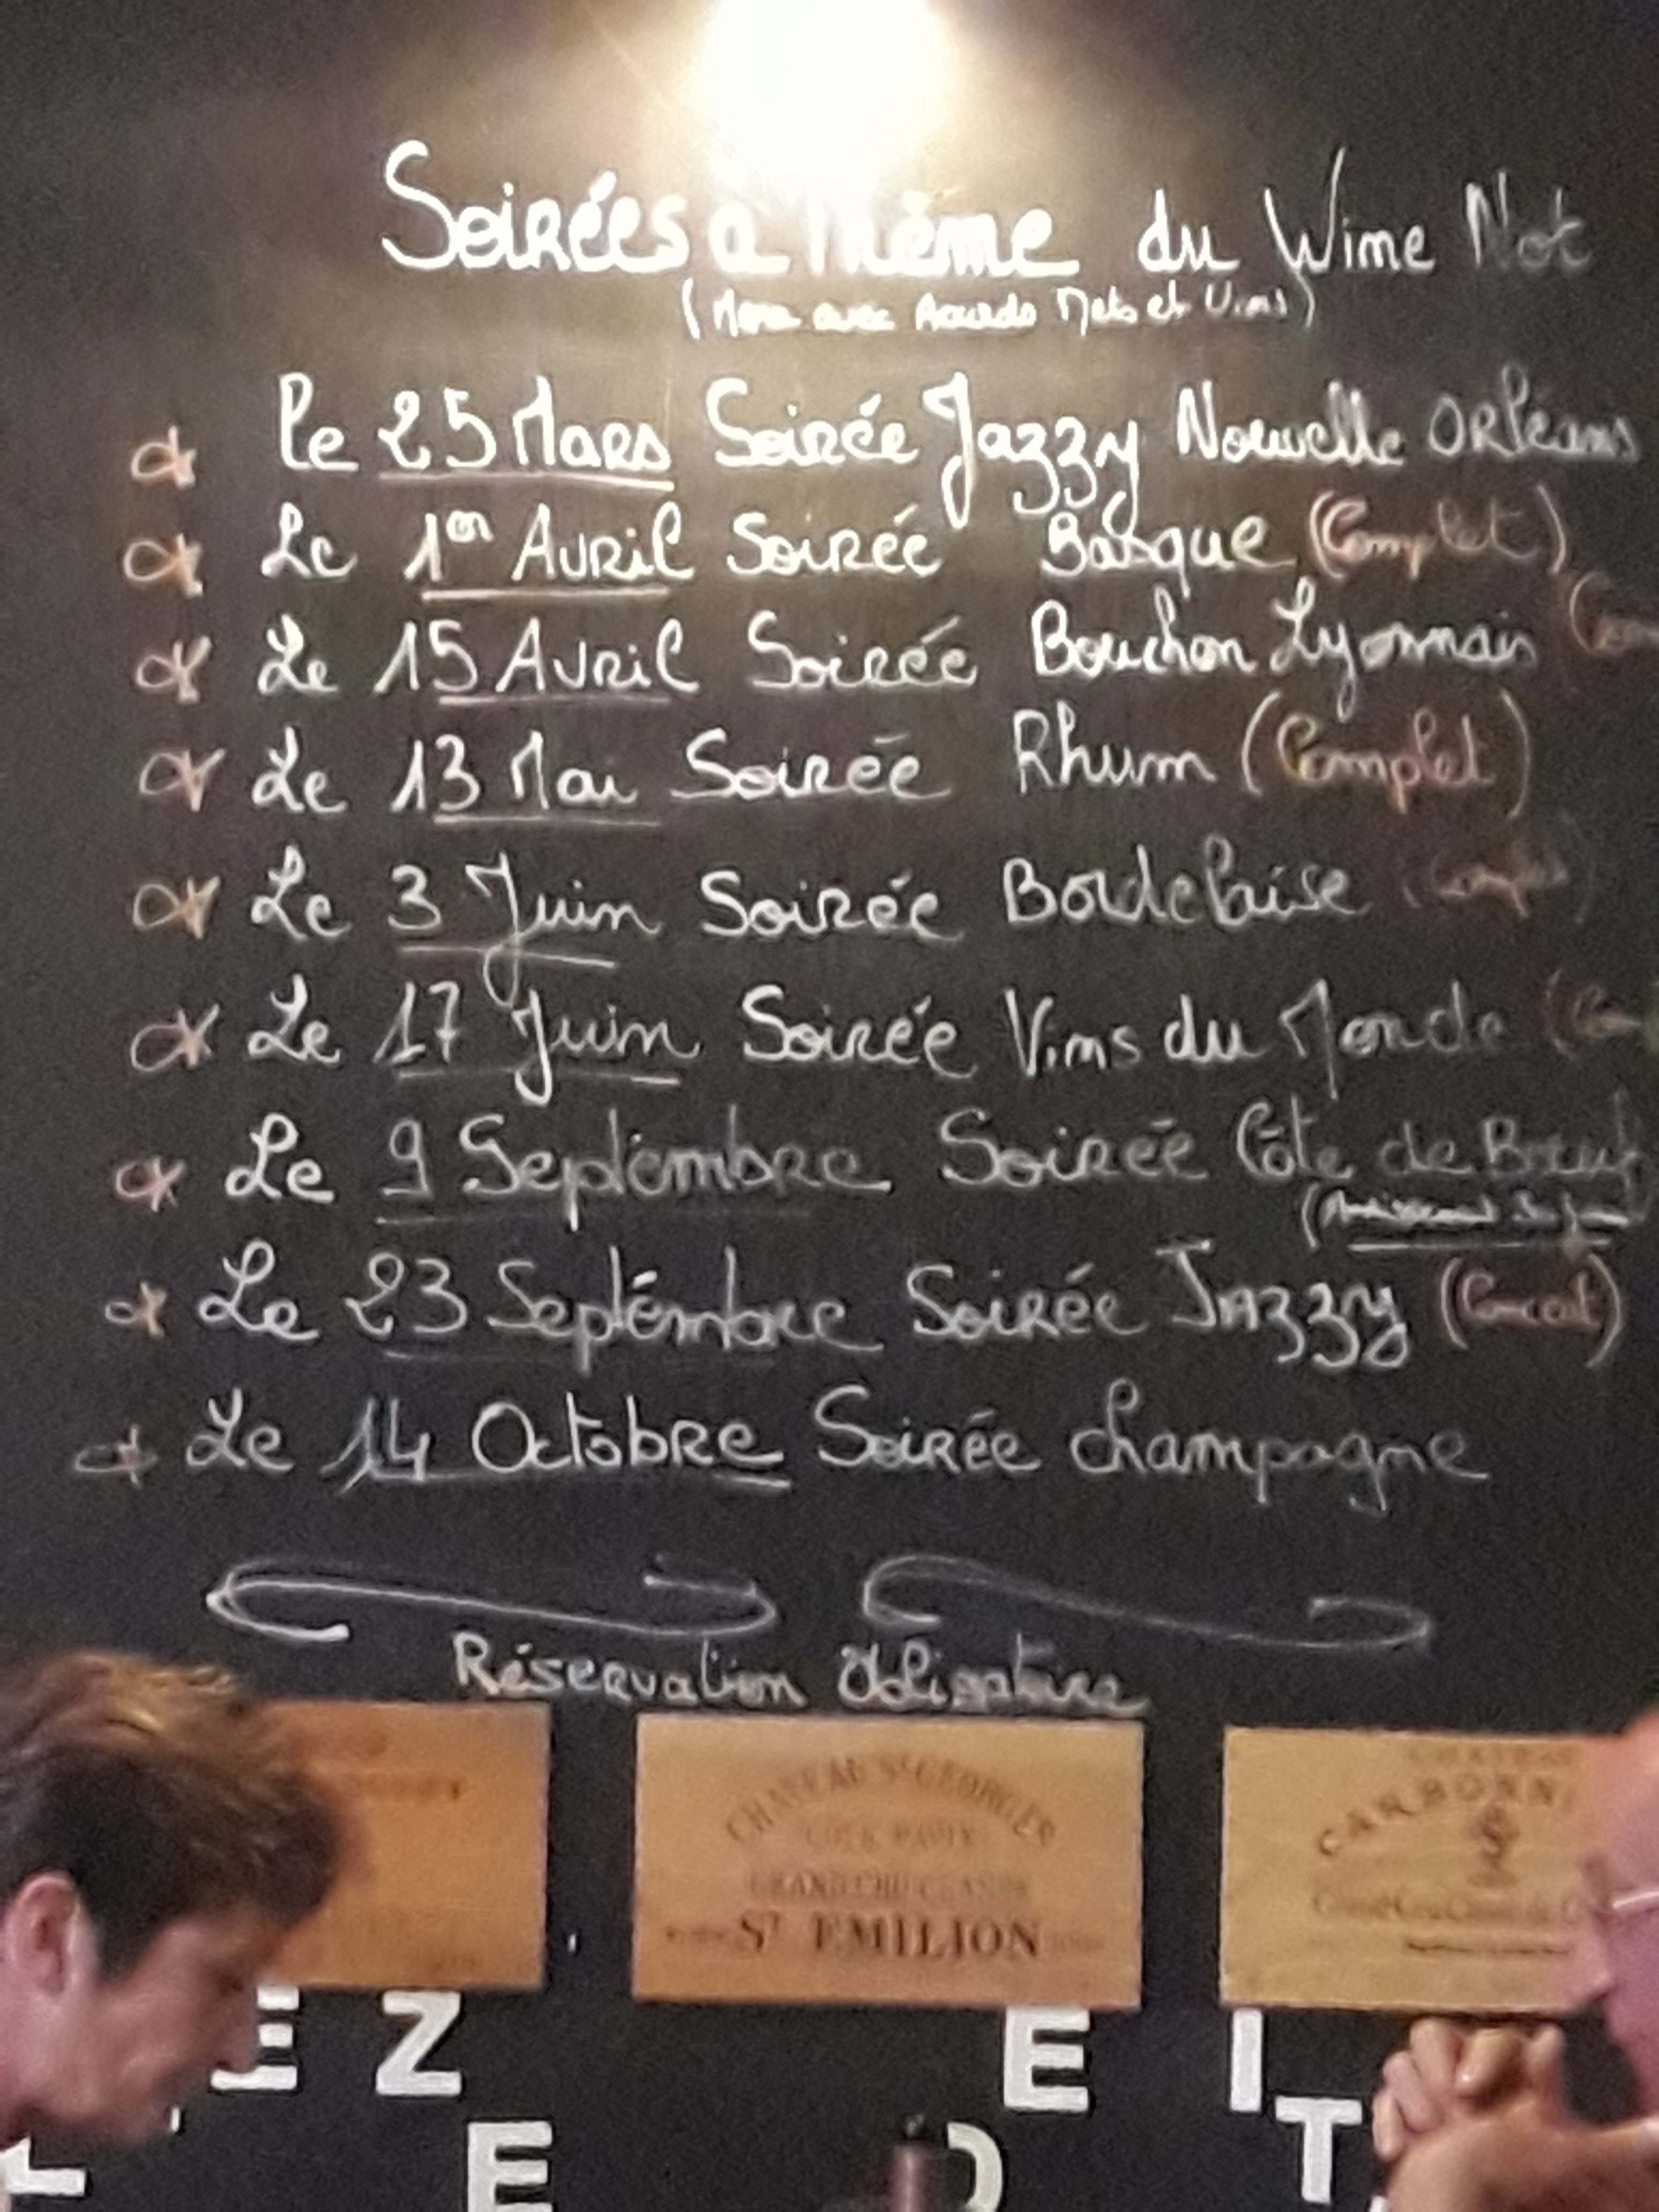 Soirées a Thème du Wine Not
(Menu avec Accords Mets et Vins)
Le 25 Mars Soirée Jazzy Nouvelle Orléans
Le 1er Avril Soirée Basque (Complet)
Le 15 Avril Soirée Bouchon Lyonnais
Le 13 Mai Soirée Rhum (Complet)
Le 3 Juin Soirée Bordelaise
Le 17 Juin Soirée Vins du Monde
Le 9 Septembre Soirée Côte de Boeuf
Le 23 Septembre Soirée Jazzy (Concert)
Le 14 Octobre Soirée Champagne
Réservation Obligatoire
CHATEAU St GEORGES
COTE PAVIE
GRAND CRU CLASSÉ
ST EMILION
CHATEAU
E Z E I
E T